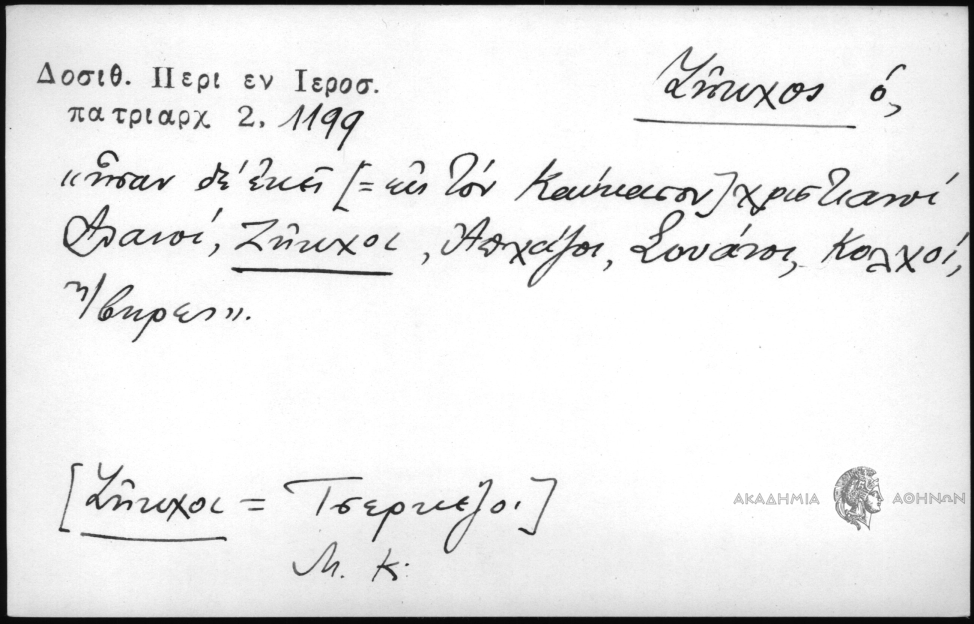 Δοσιθ. Περι εν Ιεροσ.
πατριαρχ 2, 1199
Ζῆκχος ὁ,
«ἦσαν δὲ ἐκεῖ [= εἰς τὸν Καύκασον] χριστιανοὶ
Ἀλανοί, Ζῆκχοι, Ἀπχάζοι, Σουάνοι, Κολχοί,
Ἴβηρες».
[Ζῆκχοι = Τσερκέζοι]
Μ. Κ.
ΑΚΑΔΗΜΙΑ ΑΘΗΝΩΝ